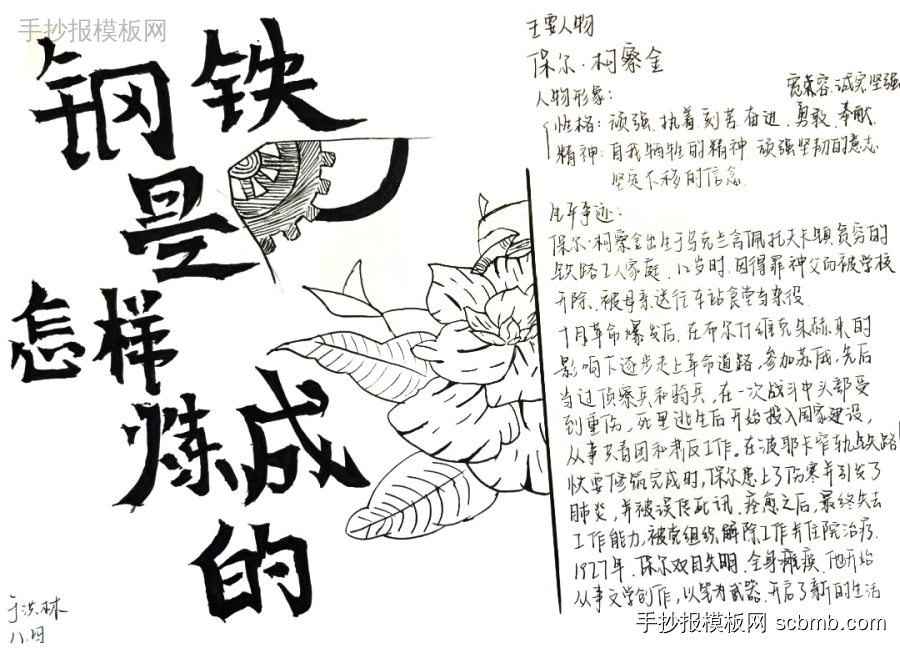 手抄报模板网
钢铁
是
怎样
炼成
的
于洪林
八.四
主要人物
保尔·柯察金
人物形象:
宽容.诚实.坚强
性格:顽强.执着.刻苦.奋进.勇敢.奉献
精神:自我牺牲的精神 顽强坚韧的意志
坚定不移的信念.
生平事迹:
保尔·柯察金出生于乌克兰舍佩托夫卡镇贫穷的
铁路工人家庭.八岁时.因得罪神父而被学校
开除、被母亲送往车站食堂当杂役.
十月革命爆发后,在布尔什维克朱赫来的
影响下逐步走上革命道路,参加苏俄,先后
当过侦察兵和骑兵,在一次战斗中头部受
到重伤,死里逃生后开始投入国家建设,
从事共青团和肃反工作。在波耶卡窄轨铁路
快要修筑完成时,保尔患上了伤寒并引发了
肺炎,并被误传死讯.痊愈之后,最终失去
工作能力,被党组织解除工作并住院治疗.
1927年.保尔双目失明.全身瘫痪.他开始
从事文学创作,以笔为武器.开启了新的生活
手抄报模板网 scbmb.com